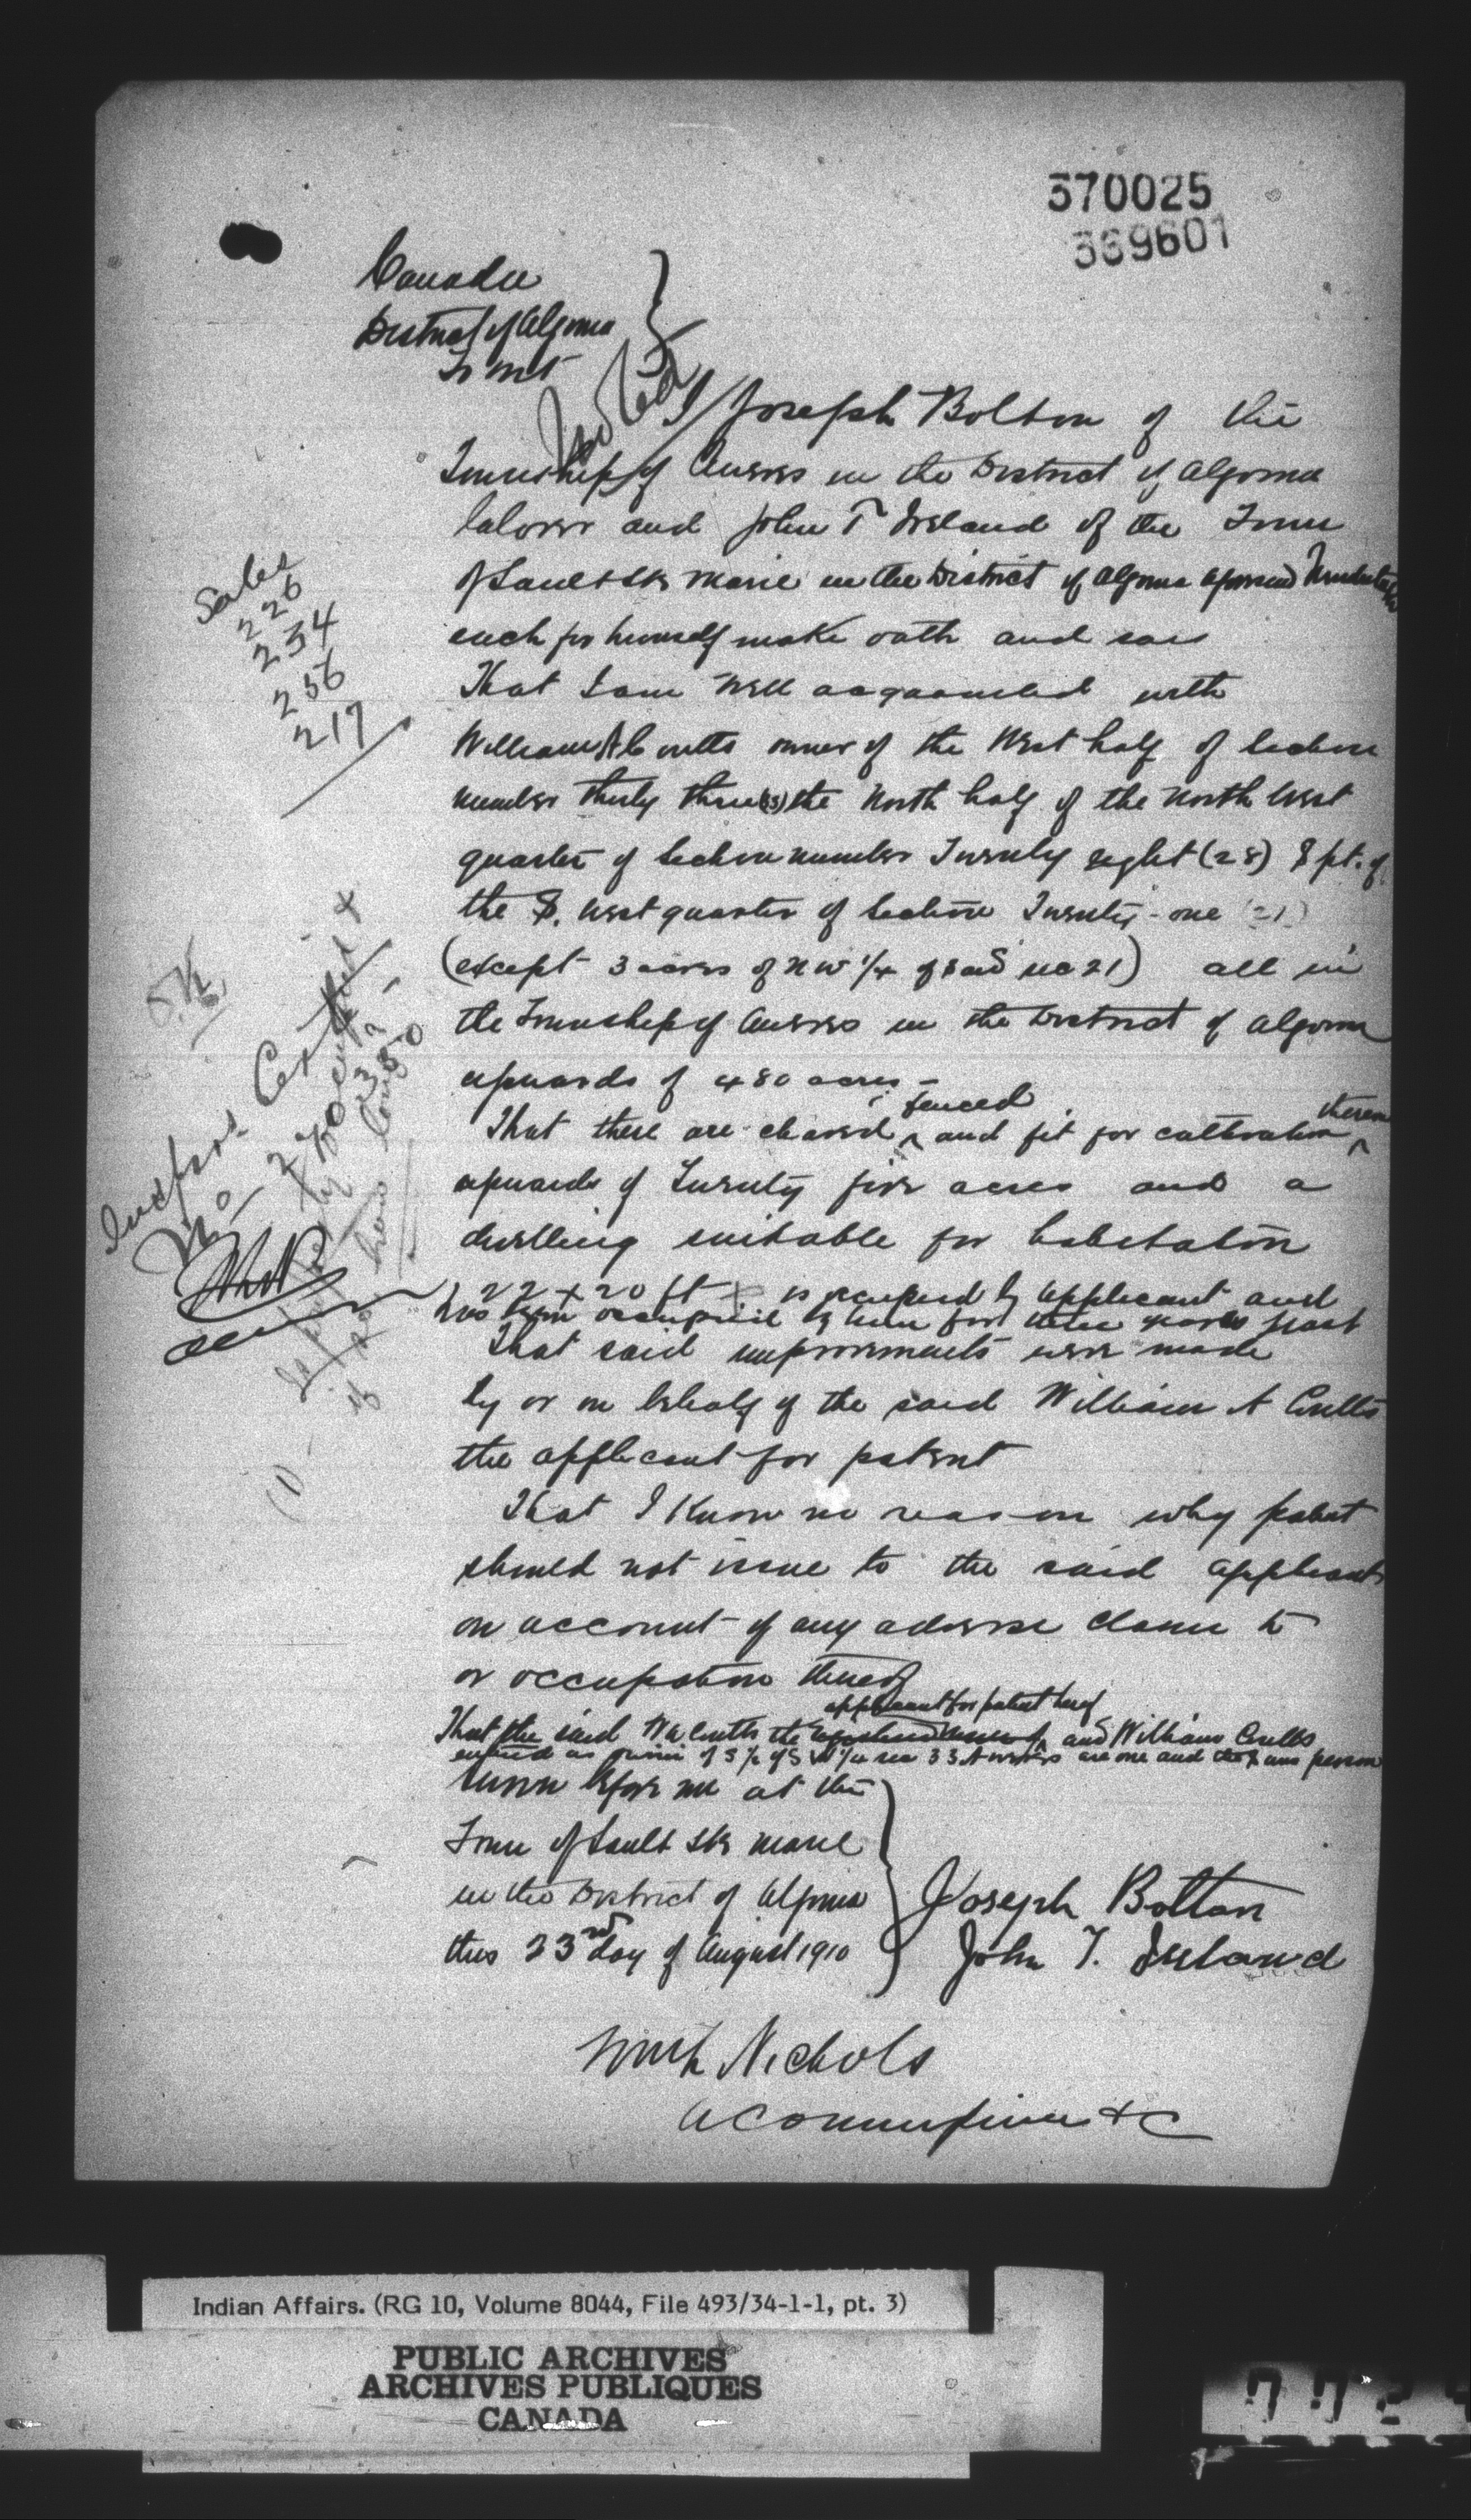 370025
369601
Canada
District of Algoma
To Wit
Noted
I Joseph Bolton of the
Township of Aweres in the District of Algoma
laborer and John T Ireland of the Town
of Sault Ste Marie in the District of Algoma
each for himself make oath and say
That I am well acquainted with
William A Coutts owner of the West half of Section
number thirty three (33) the North half of the North West
quarter of Section number Twenty eight (28) & pt. of
the S. West quarter of Section Twenty-one (21)
(except 3 acres of NW 1/4 of said sec 21) all in
the Township of Aweres in the District of Algoma
upwards of 480 acres -
fenced
therein
That there are cleared ^ and fit for cultivation ^
upwards of Twenty five acres and a
dwelling suitable for habitation
22 x 20 ft is occupied by applicant and
has been occupied by him for three years past
That said improvements were made
by or on behalf of the said William A Coutts
the applicant for patent
That I know no reason why patent
should not issue to the said applicant
on account of any adverse claim to
or occupation thereof
applicant for patent
That the said Wm Coutts the ^ and William Coutts
as owner of S 1/2 of S W 1/4 sec 33 Aweres are one and the same person
Sworn before me at the
Town of Sault Ste Marie
in the District of Algoma
this 23rd day of August 1910
Joseph Bolton
John T. Ireland
Nichols
A Commissioner &c
Sales
226
234
256
217
O.K.
Inspors. Certfd
No. 270
Indian Affairs. (RG 10, Volume 8044, File 493/34-1-1, pt. 3)
PUBLIC ARCHIVES
ARCHIVES PUBLIQUES
CANADA